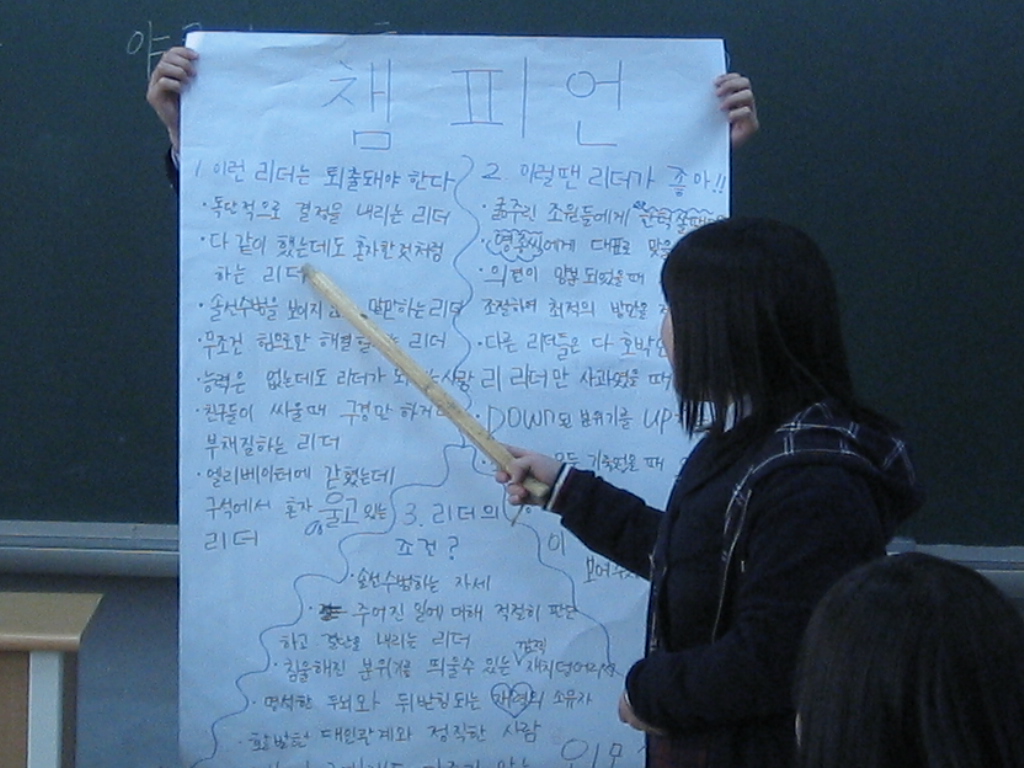 야
챔피언
1. 이런 리더는 퇴출돼야 한다
· 독단적으로 결정을 내리는 리더
· 다 같이 했는데도 혼자한 것처럼
하는 리더
· 솔선수범을 보이지 말만하는 리더
· 무조건 힘으로만 해결 리더
· 능력은 없는데도 리더가 사람
· 친구들이 싸울때 구경만 하거나
부채질하는 리더
· 엘리베이터에 갇혔는데
구석에서 혼자 울고 있는
리더
2. 이럴땐 리더가 좋아!!
· 굶주린 조원들에게 한턱 쏠때
· 에게 대표로 맞을
· 의견이 양분 되었을 때
조절하여 최적의 방안을
· 다른 리더들은 다 호박
리 리더만 사과였을 때
· DOWN된 분위기를 UP
모두 기죽었을 때
이
보여주
3. 리더의
조건?
· 솔선수범하는 자세
· 주어진 일에 대해 적절히 판단
하고 결단을 내리는 리더
· 침울해진 분위기를 띄울수 있는 깜찍 재치덩어리
· 명석한 두뇌와 뒤받침되는 재력의 소유자
· 활발한 대인관계와 정직한 사람